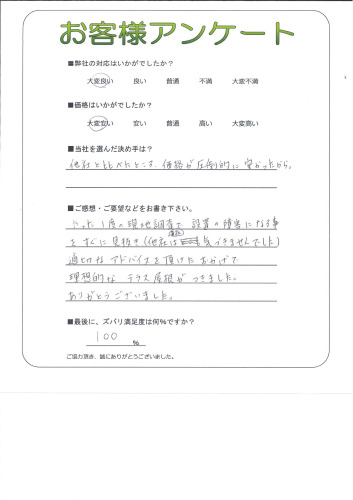 お客様アンケート
■弊社の対応はいかがでしたか?
大変良い 良い 普通 不満 大変不満
■価格はいかがでしたか?
大変安い 安い 普通 高い 大変高い
■当社を選んだ決め手は?
他社とくらべたところ、価格が圧倒的に安かったから。
■ご感想・ご要望などをお書き下さい。
たった1度の現地調査で設置の障害になる事
をすぐに見抜き(他社は 気づきませんでした)
適切なアドバイスを頂けたおかげで
理想的な テラス屋根がつきました。
ありがとうございました。
■最後に、ズバリ満足度は何%ですか?
100 %
ご協力頂き、誠にありがとうございました。